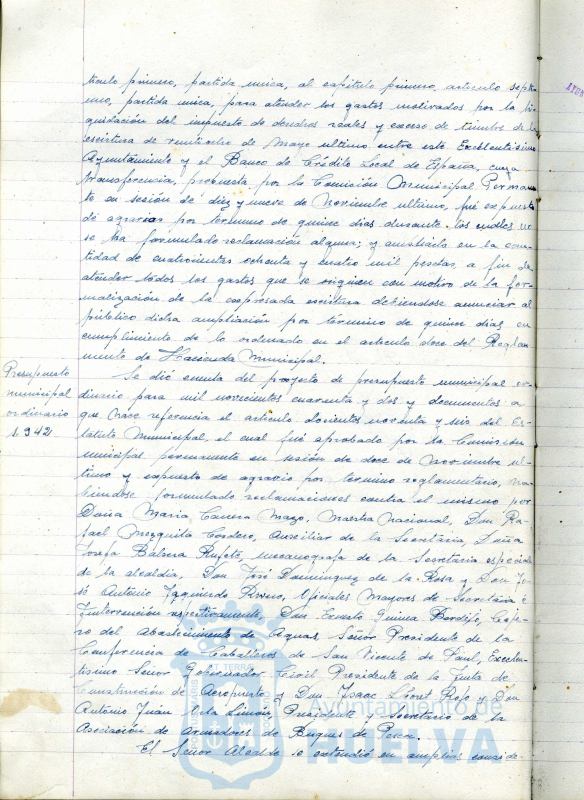 tículo primero, partida única, al capítulo primero, artículo sépti-
mo, partida única, para atender los gastos motivados por la li-
quidación del impuesto de derechos reales y exceso de timbre de la
escritura de veintiocho de Mayo último entre este Excelentísimo
Ayuntamiento y el Banco de Crédito Local de España, cuya
transferencia, propuesta por la Comisión Municipal Permanen-
te en sesión de diez y nueve de Noviembre último, fué expuesta
de agravios por término de quince días durante los cuales no
se ha formulado reclamación alguna; y ampliarlo en la can-
tidad de cuatrocientas ochenta y cuatro mil pesetas, a fin de
atender todos los gastos que se originen con motivo de la for-
malización de la expresada escritura debiéndose anunciar al
público dicha ampliación por término de quince días en
cumplimiento de lo ordenado en el artículo doce del Regla-
mento de Hacienda Municipal.
Presupuesto
municipal
ordinario
1.942
Se dió cuenta del proyecto de presupuesto municipal or-
dinario para mil novecientos cuarenta y dos y documentos a
que hace referencia el artículo doscientos noventa y seis del Es-
tatuto Municipal, el cual fué aprobado por la Comisión
municipal permanente en sesión de doce de Noviembre úl-
timo y expuesto de agravio por término reglamentario, ha-
biéndose formulado reclamaciones contra el mismo por
Doña María Mazo, Maestra Nacional, Don Ra-
fael Mezquita Cordero, Auxiliar de la Secretaría, Doña
Josefa Balsera Rufete, mecanógrafa de la Secretaría especial
de la alcaldía, Don José Domínguez de la Rosa y Don Jo-
sé Antonio Izquierdo Rivero, Oficiales Mayores de Secretaría e
Intervención respectivamente, Don Ernesto Guinea Bordejé,
del Abastecimiento de Aguas Señor Presidente de la
Conferencia de Caballeros de San Vicente de Paul, Excelen-
tísimo Señor Gobernador Civil Presidente de la Junta de
Construcción de Aeropuerto y Don Isaac y Don
Antonio Juan Presidente y Secretario de la
Asociación de Armadores de Buques de Pesca.
El Señor Alcalde se extendió en amplias conside-
Ayuntamiento de
HUELVA